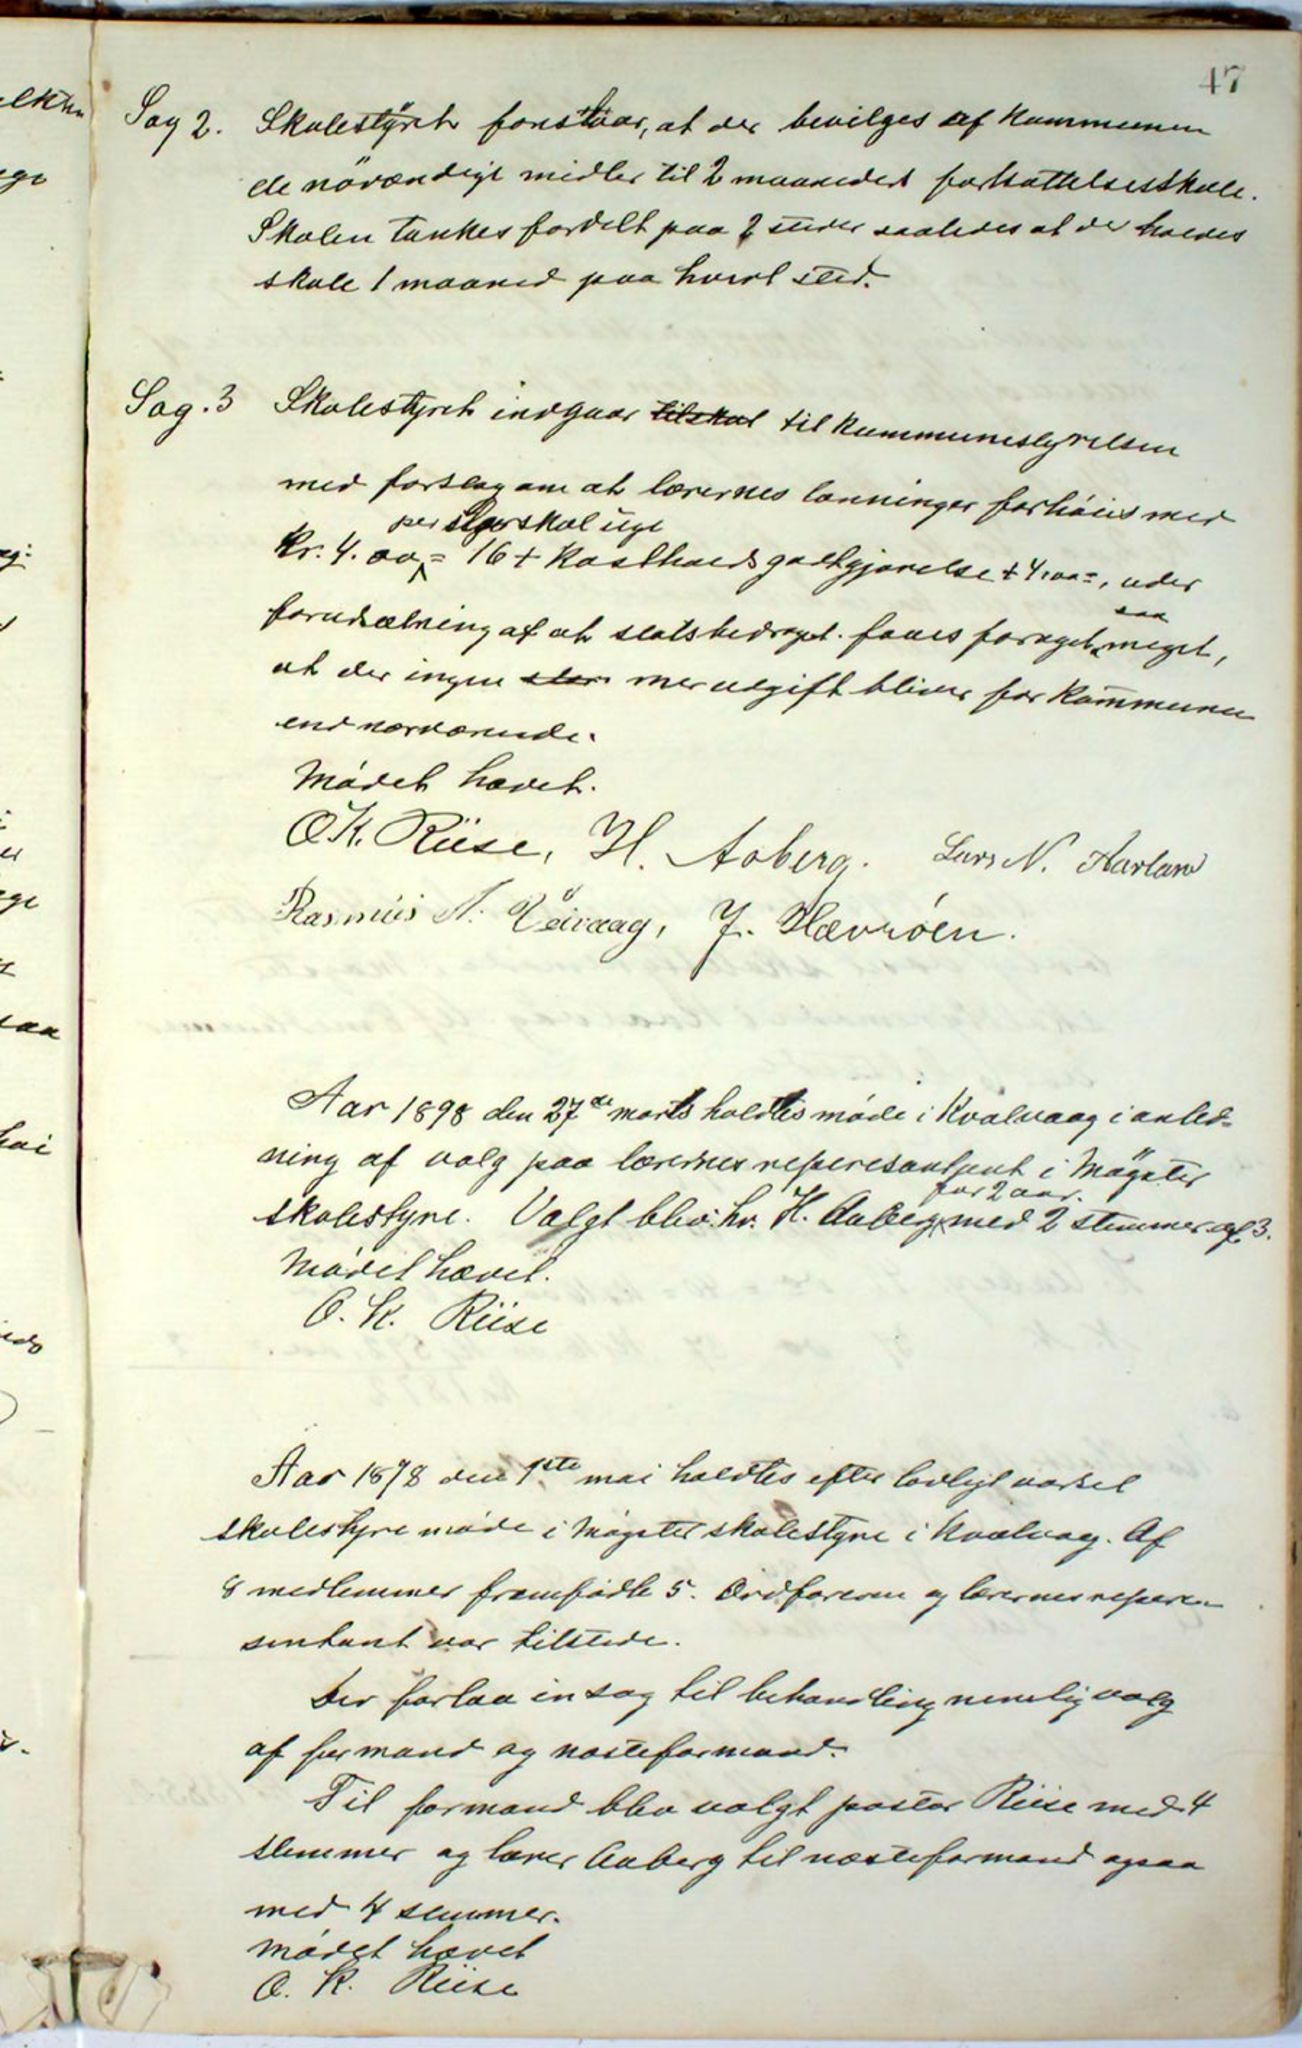 47
Sag 2. Skolestyret foreslaar, at der bevilges af kommunen
de növændige midler til 2 maaneders fortsættelsesskole.
Skolen tænkes fordelt paa 2 steder saaledes at der holdes
skole 1 maaned paa hvert sted.
Sag. 3 Skolestyret indgaar tilskol til kommunestyrelsen
med forslag om at lærernes lønninger forhöies med
per skoleuge
kr. 4.00 = 16 + kostholdsgodtgjørelse + 4,00 =, under
forudsætning af at statsbidraget faaes forøget saa meget,
at der ingen mer utgift bliver for kommunen
end nærværende.
Mödet hævet.
O.K. Riise, H. Aaberg. Lars N. Harland
Rasmus N. Veivaag, J. Hævröen.
Aar 1898 den 27de marts holdtes möde i Kvalvaag i anled-
ning af valg paa lærernes reperesantant i Mögster
for 2 aar.
skolestyre. Valgt blev: hr. H. Aaberg med 2 stemmer af 3.
Mödet hævet.
O. K. Riise
Aar 1898 den 1ste mai holdtes efter lovligt varsel
skolestyremöde i Mögster skolestyre i Kvalvag. Af
8 medlemmer fremmödte 5. Ordføreren og lærernes repere-
sentant var tilstede.
Der forlaa en sag til behandling nemelig valg
af formand og næsteformand.
Til formand blev valgt pastor Riise med 4
stemmer og lærer Aaberg til næsteformand ogsaa
med 4 stemmer.
mödet hævet
O. K. Riise